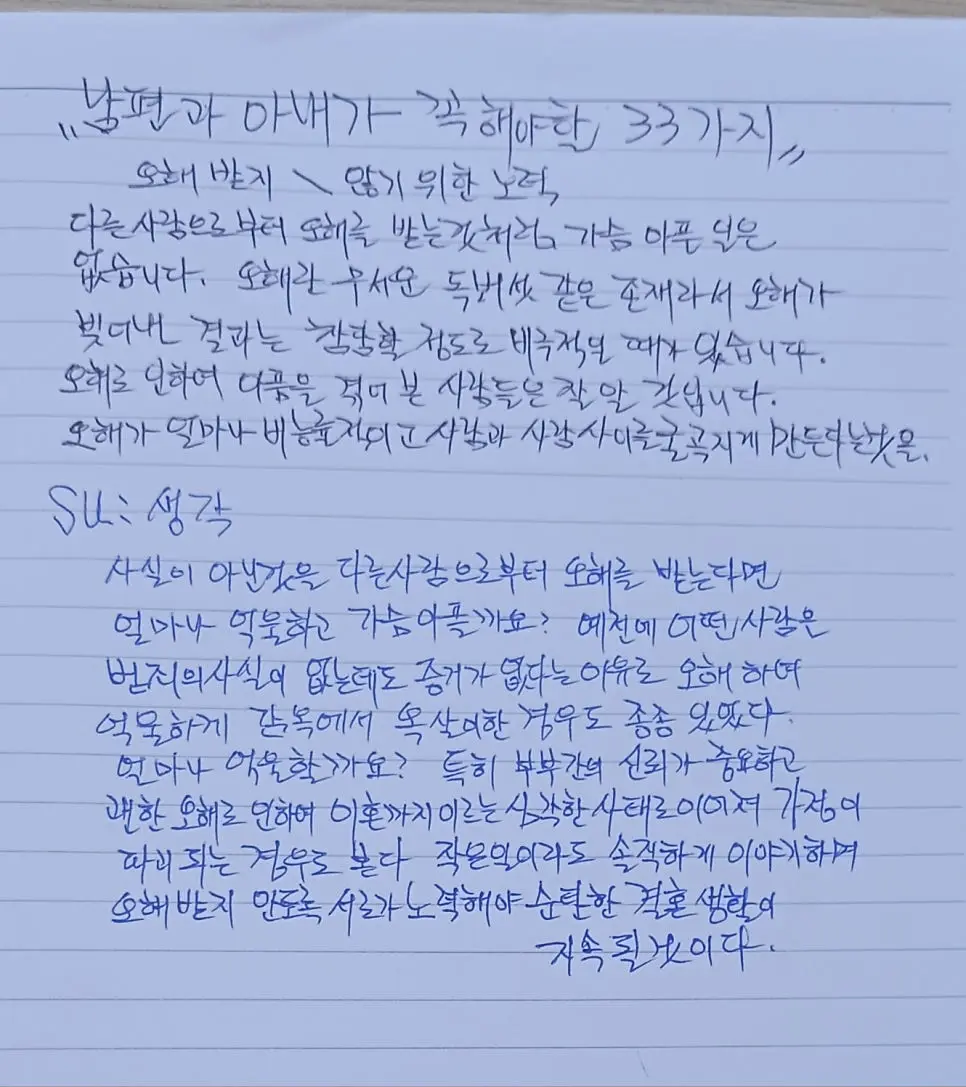 "남편과 아내가 꼭 해야할 33가지"
오해 받지 \ 않기 위한 노력,
다른사람으로부터 오해를 받는것처럼, 가슴 아픈 일은
없습니다. 오해란 무서운 독버섯 같은 존재라서 오해가
빚어낸 결과는 참담할 정도로 비극적일 때가 있습니다.
오해로 인하여 다툼을 겪어 본 사람들은 잘 알 것입니다.
오해가 얼마나 비능률적이고 사람과 사람사이를 굴곡지게 만든다는것을.
SU: 생각
사실이 아닌것을 다른사람으로부터 오해를 받는다면
얼마나 억울하고 가슴아플까요? 예전에 어떤사람은
범죄의사실이 없는데도 증거가 없다는 이유로 오해 하여
억울하게 감옥에서 옥살이한 경우도 종종 있었다.
얼마나 억울할까요? 특히 부부간의 신뢰가 중요하고
괜한 오해로 인하여 이혼까지 이르는 심각한 사태로 이어져 가정이
파괴 되는 경우도 본다 작은일이라도 솔직하게 이야기하며
오해 받지 안도록 서로가 노력해야 순탄한 결혼 생활이
지속 될것이다.